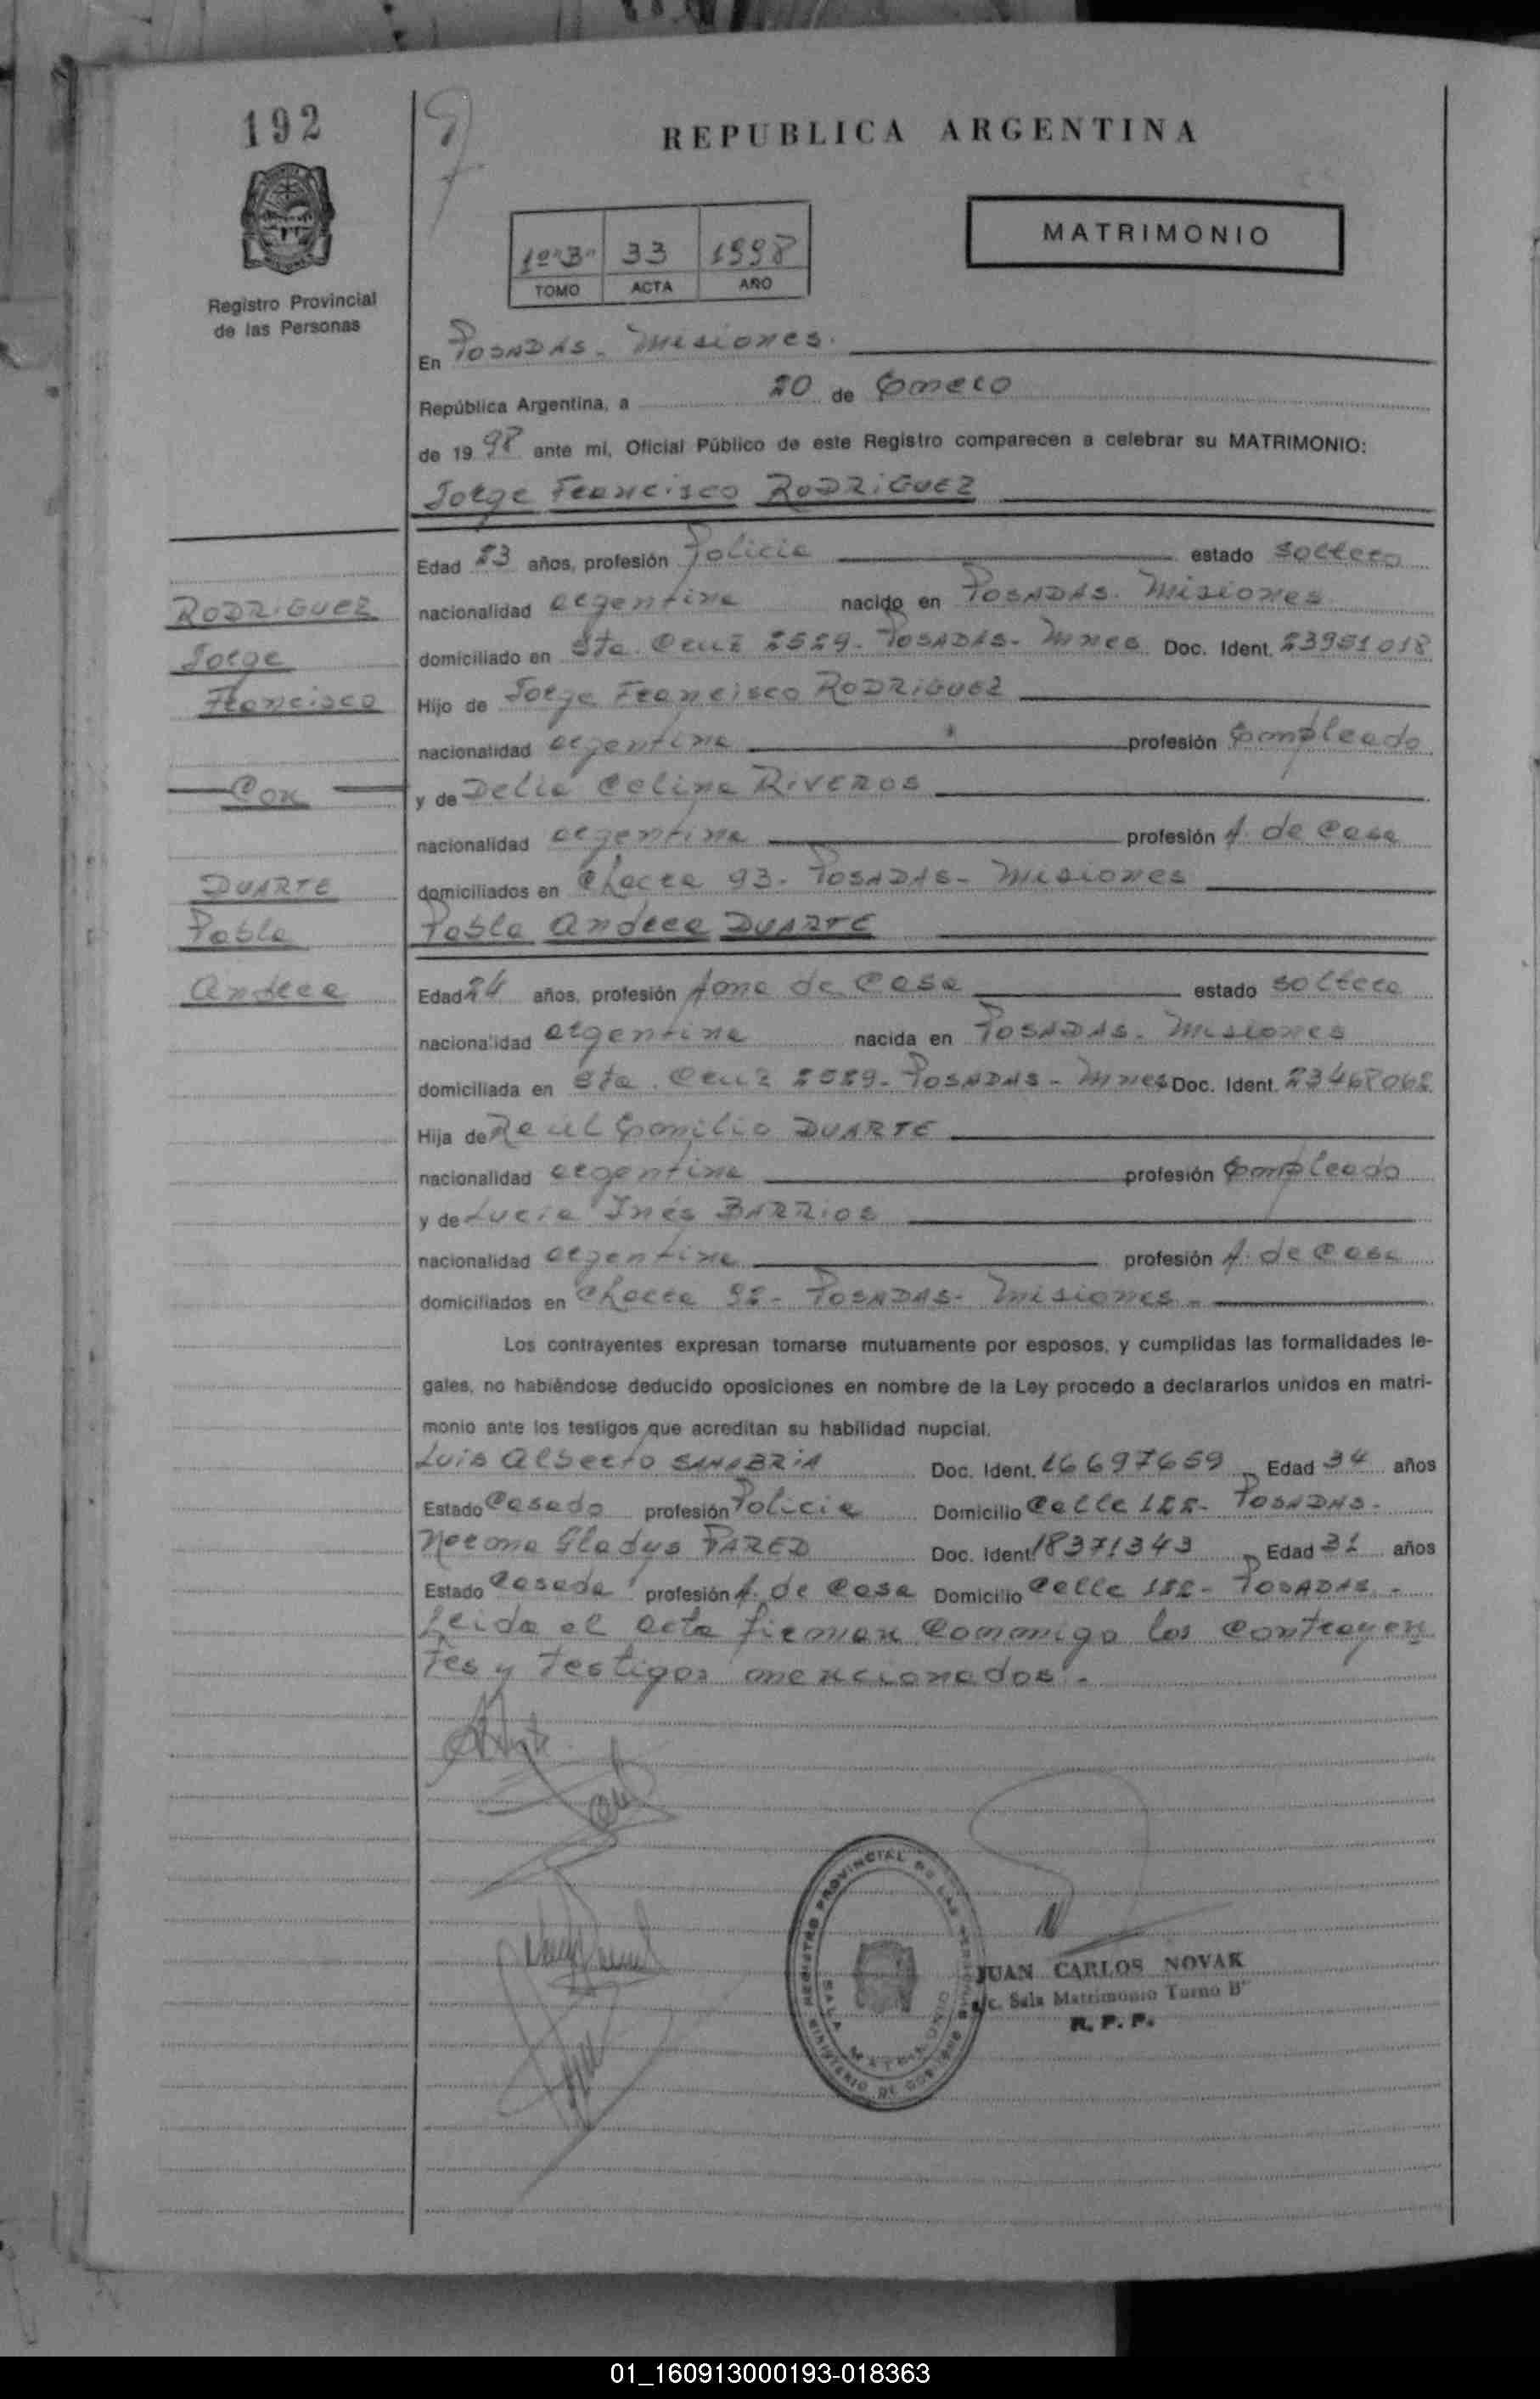 192
REPUBLICA ARGENTINA
MATRIMONIO
1º"B" 33 1998
TOMO ACTA AÑO
Registro Provincial
de las Personas
En POSADAS - Misiones.
República Argentina, a 20 de Enero
de 19 98 ante mi, Oficial Público de este Registro comparecen a celebrar su MATRIMONIO:
Jorge Francisco RODRIGUEZ
Edad 23 años, profesión Policia estado soltero
RODRIGUEZ
nacionalidad argentina nacido en POSADAS. Misiones
Jorge
domiciliado en Sta. Cruz 2529 - POSADAS - Mnes Doc. Ident. 23951018
Francisco
Hijo de Jorge Francisco RODRIGUEZ
nacionalidad argentina profesión Empleado
Con
y de Delia Celina RIVEROS
nacionalidad argentina profesión A. de Casa
DUARTE
domiciliados en Chacra 93 - POSADAS - Misiones
Pabla
Pabla Andrea DUARTE
Andrea
Edad 24 años, profesión Ama de Casa estado soltera
nacionalidad argentina nacida en POSADAS - Misiones
domiciliada en Sta. Cruz 2529 - POSADAS - Mnes Doc. Ident. 23468062
Hija de Raúl Emilio DUARTE
nacionalidad argentina profesión Empleado
y de Lucia Inés BARRIOS
nacionalidad argentina profesión A. de Casa
domiciliados en Chacra 92 - POSADAS - Misiones -
Los contrayentes expresan tomarse mutuamente por esposos, y cumplidas las formalidades le-
gales, no habiéndose deducido oposiciones en nombre de la Ley procedo a declararlos unidos en matri-
monio ante los testigos que acreditan su habilidad nupcial.
Luis Alberto SANABRIA Doc. Ident. 16697659 Edad 34 años
Estado Casado profesión Policia Domicilio Calle 122 - POSADAS -
Norma Gladys PARED Doc. Ident. 18371343 Edad 31 años
Estado Casada profesión A. de Casa Domicilio Calle 122 - POSADAS -
Leida el acta firman conmigo los contrayen
tes y testigos mencionados -
REGISTRO PROVINCIAL DE LAS PERSONAS
SALA MATRIMONIO
MINISTERIO DE GOBIERNO
JUAN CARLOS NOVAK
a/c. Sala Matrimonio Turno B"
R. P. P.
01_160913000193-018363